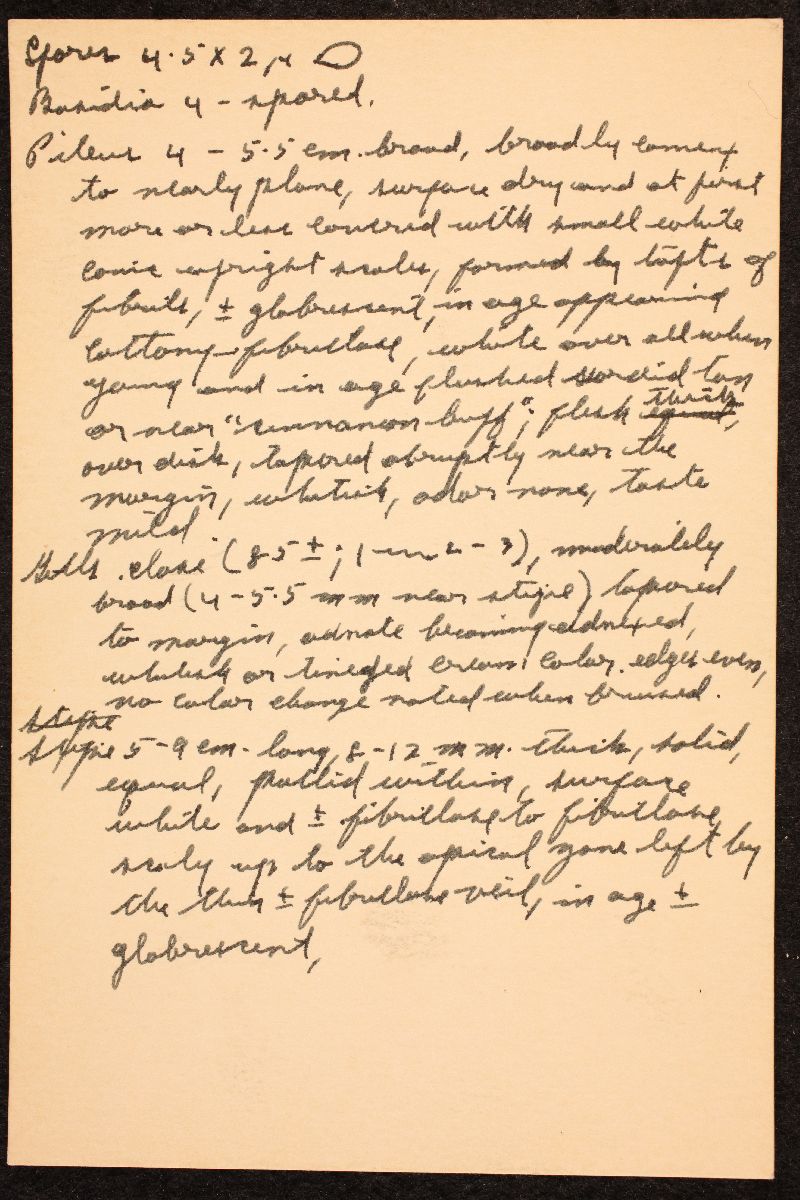 Spores 4.5 x 2 µ
Basidia 4 - spored.
Pileus 4 - 5.5 cm. broad, broadly convex
to nearly plane, surface dry and at first
more or less covered with small white
conic upright scales, formed by tufts of
fibrils, ± glabrescent, in age appearing
cottony-fibrillose, white over all when
young and in age flushed sordid tan
or near "cinnamon buff"; flesh thick
over disk, tapered abruptly near the
margin, whitish, odor none, taste
mild.
Gills close (85 ±; 2 - 3), moderately
broad (4 - 5.5 mm near stipe) tapered
to margin, adnate becoming adnexed,
whitish or tinged cream color. edges even,
no color change noted when bruised.
Stipe
Stipe 5-9 cm. long, 8-12 mm. thick, solid,
equal, pallid within, surface
white and ± fibrillose to fibrillose
scaly up to the apical zone left by
the thin ± fibrillose veil, in age ±
glabrescent,